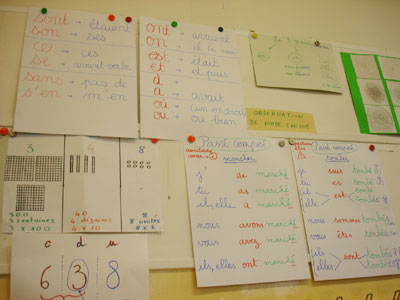 sont → étaient
son → ses
ce → ces
se → avant verbe
sans → pas de
s'en → m'en
ont → avaient
on
est → était
et → et puis
a
a → avait
où → (un endroit)
ou → ou bien
OBSERVATION
3
4
8
300
3 centaines
3 x 100
40
4 dizaines
4 x 10
8
8 unités
8 x 1
c d u
6 3 8
Passé composé
marcher
j' ai marché
tu as marché
il, elle a marché
nous avons marché
vous avez marché
ils, elles ont marché
Passé composé
tomber
je suis tombé
tu es tombé
il
elle
est
tombé
tombée
nous sommes tombés
vous êtes tombés
ils
elles
sont
tombés
tombées